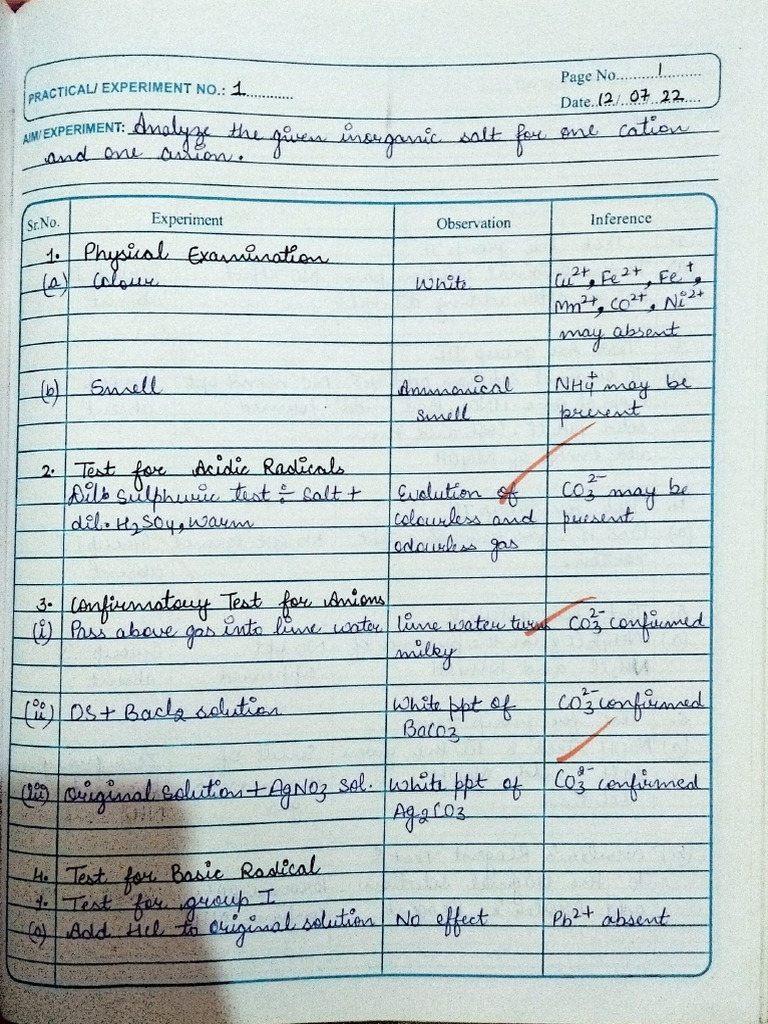 PRACTICAL/ EXPERIMENT NO.: 1
Page No. 1
Date. 12/ 07 22
AIM/ EXPERIMENT: Analyze the given inorganic salt for one cation
and one anion.
Sr.No. Experiment Observation Inference
1. Physical Examination
(a) Colour White Cu²⁺, Fe²⁺, Fe⁺,
Mn²⁺, CO²⁺, Ni²⁺
may absent
(b) Smell Ammonical NH4⁺ may be
smell present
2. Test for Acidic Radicals
Dil. Sulphuric test :- Salt + Evolution of CO₃²⁻ may be
dil. H₂SO₄, warm colourless and present
odourless gas
3. Confirmatory Test for Anions
(i) Pass above gas into lime water lime water turns CO₃²⁻ confirmed
milky
(ii) OS + Bacl₂ solution White ppt of CO₃²⁻ confirmed
BaCO₃
(iii) Original Solution + AgNO₃ sol. White ppt of CO₃²⁻ confirmed
Ag₂CO₃
4. Test for Basic Radical
1. Test for group I
(a) Add Hcl to original solution No effect Pb²⁺ absent